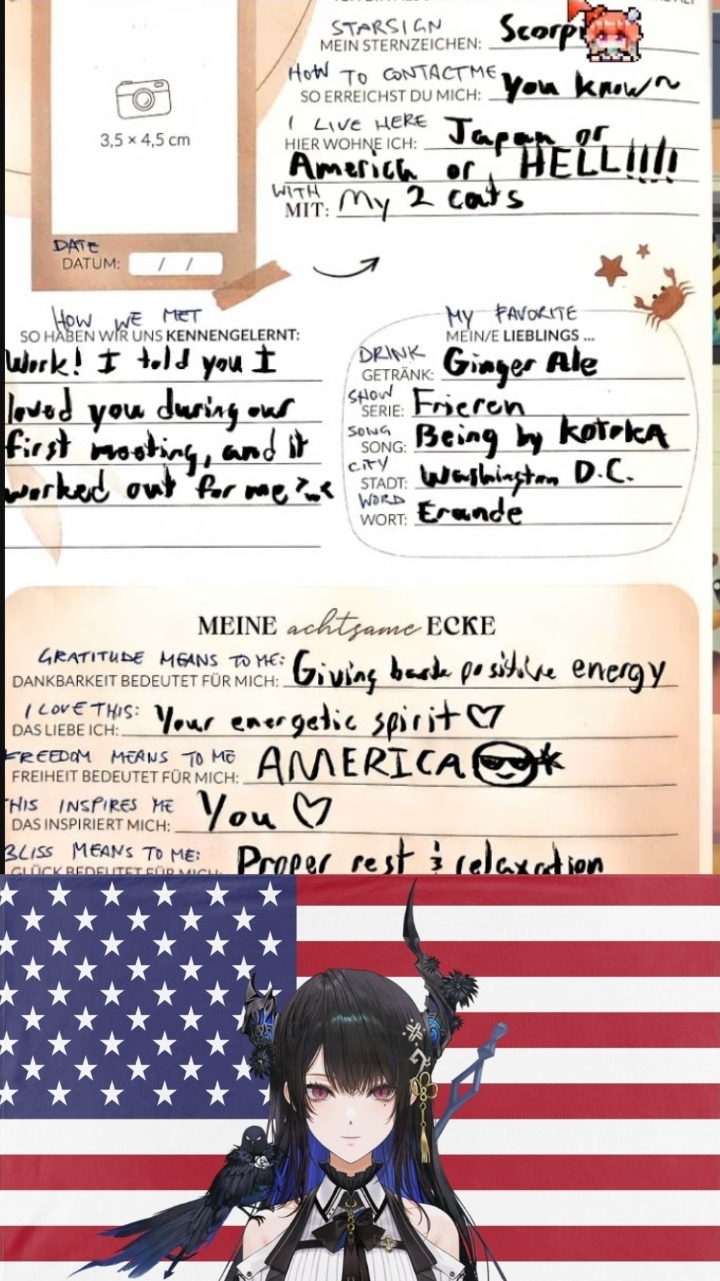 STARSIGN
MEIN STERNZEICHEN: Scorpi
HOW TO CONTACT ME
SO ERREICHST DU MICH: You know~
I LIVE HERE
HIER WOHNE ICH: Japan or
America or HELL!!!!
WITH
MIT: My 2 cats
3,5 × 4,5 cm
DATE
DATUM: / /
HOW WE MET
SO HABEN WIR UNS KENNENGELERNT:
Work! I told you I
loved you during our
first meeting, and it
worked out for me >⩊<
MY FAVORITE
MEIN/E LIEBLINGS ...
DRINK
GETRÄNK: Ginger Ale
SHOW
SERIE: Frieren
SONG
SONG: Being by KOTOKA
CITY
STADT: Washington D.C.
WORD
WORT: Erande
MEINE achtsame ECKE
GRATITUDE MEANS TO ME:
DANKBARKEIT BEDEUTET FÜR MICH: Giving back positive energy
I LOVE THIS:
DAS LIEBE ICH: Your energetic spirit ♡
FREEDOM MEANS TO ME
FREIHEIT BEDEUTET FÜR MICH: AMERICA
THIS INSPIRES ME
DAS INSPIRIERT MICH: You ♡
BLISS MEANS TO ME:
GLÜCK BEDEUTET FÜR MICH: Proper rest & relaxation